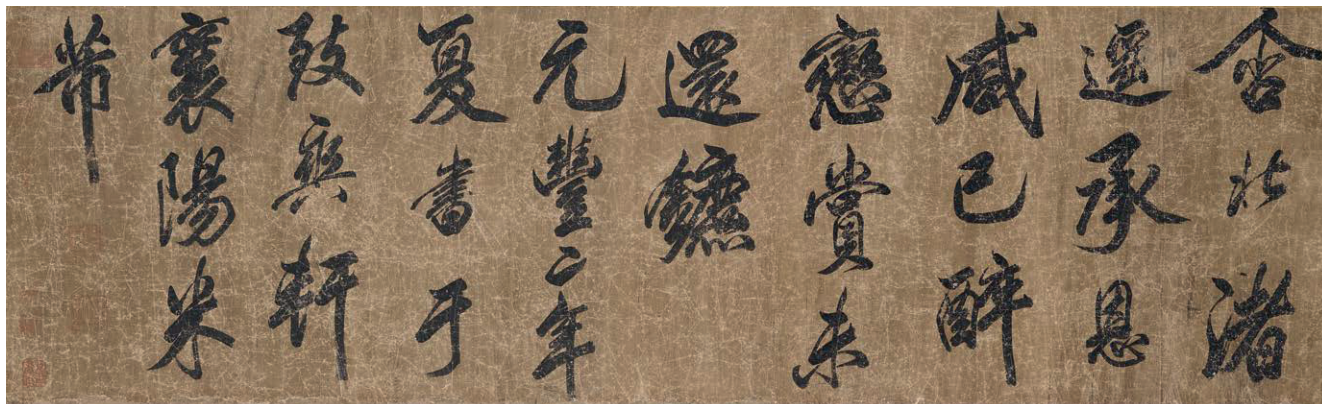 含北渚
遙承恩
咸已醉
戀賞未
還鑣
元豐二年
夏書于
致爽軒
襄陽米
芾